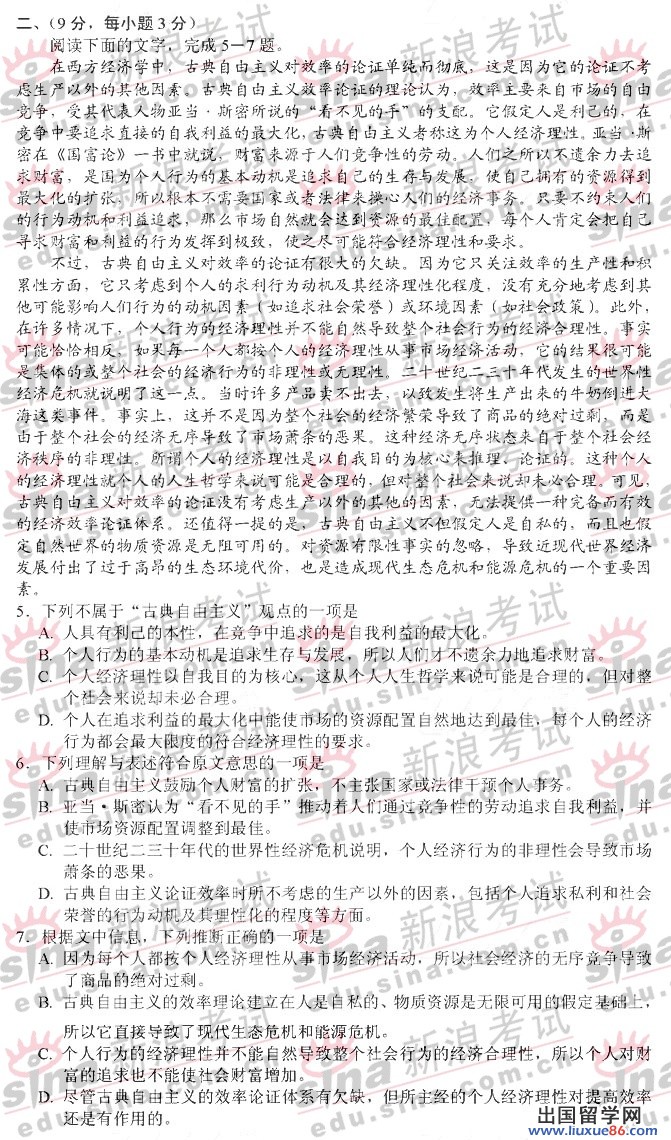 二、（9 分，每小题 3 分）
阅读下面的文字，完成5－7题。
在西方经济学中，古典自由主义对效率的论证单纯而彻底，这是因为它的论证不考
虑生产以外的其他因素。古典自由主义效率论证的理论认为，效率主要来自市场的自由
竞争，受其代表人物亚当·斯密所说的“看不见的手”的支配。它假定人是利己的，在
竞争中要追求直接的自我利益的最大化，古典自由主义者称这为个人经济理性。亚当·斯
密在《国富论》一书中就说，财富来源于人们竞争性的劳动。人们之所以不遗余力去追
求财富，是因为个人行为的基本动机是追求自己的生存与发展，使自己拥有的资源得到
最大化的扩张，所以根本不需要国家或者法律来操心人们的经济事务。只要不约束人们
的行为动机和利益追求，那么市场自然就会达到资源的最佳配置，每个人肯定会把自己
寻求财富和利益的行为发挥到极致，使之尽可能符合经济理性和要求。
不过，古典自由主义对效率的论证有很大的欠缺。因为它只关注效率的生产性和积
累性方面，它只考虑到个人的求利行为动机及其经济理性化程度，没有充分地考虑到其
他可能影响人们行为的动机因素（如追求社会荣誉）或环境因素（如社会政策）。此外，
在许多情况下，个人行为的经济理性并不能自然导致整个社会行为的经济合理性。事实
可能恰恰相反，如果每一个人都按个人的经济理性从事市场经济活动，它的结果很可能
是集体的或整个社会的经济行为的非理性或无理性。二十世纪二三十年代发生的世界性
经济危机就说明了这一点。当时许多产品卖不出去，以致发生将生产出来的牛奶倒进大
海这类事件。事实上，这并不是因为整个社会的经济繁荣导致了商品的绝对过剩，而是
由于整个社会的经济无序导致了市场萧条的恶果。这种经济无序状态来自于整个社会经
济秩序的非理性。所谓个人的经济理性是以自我目的为核心来推理、论证的。这种个人
的经济理性就个人的人生哲学来说可能是合理的，但对整个社会来说却未必合理。可见，
古典自由主义对效率的论证没有考虑生产以外的其他的因素，无法提供一种完备而有效
的经济效率论证体系。还值得一提的是，古典自由主义不但假定人是自私的，而且也假
定自然世界的物质资源是无阻可用的。对资源有限性事实的忽略，导致近现代世界经济
发展付出了过于高昂的生态环境代价，也是造成现代生态危机和能源危机的一个重要因
素。
5．下列不属于“古典自由主义”观点的一项是
A. 人具有利己的本性，在竞争中追求的是自我利益的最大化。
B. 个人行为的基本动机是追求生存与发展，所以人们才不遗余力地追求财富。
C. 个人经济理性以自我目的为核心，这从个人人生哲学来说可能是合理的，但对整
个社会来说却未必合理。
D. 个人在追求利益的最大化中能使市场的资源配置自然地达到最佳，每个人的经济
行为都会最大限度的符合经济理性的要求。
6．下列理解与表述符合原文意思的一项是
A. 古典自由主义鼓励个人财富的扩张，不主张国家或法律干预个人事务。
B. 亚当·斯密认为“看不见的手”推动着人们通过竞争性的劳动追求自我利益，并
使市场资源配置调整到最佳。
C. 二十世纪二三十年代的世界性经济危机说明，个人经济行为的非理性会导致市场
萧条的恶果。
D. 古典自由主义论证效率时所不考虑的生产以外的因素，包括个人追求私利和社会
荣誉的行为动机及其理性化的程度等方面。
7．根据文中信息，下列推断正确的一项是
A. 因为每个人都按个人经济理性从事市场经济活动，所以社会经济的无序竞争导致
了商品的绝对过剩。
B. 古典自由主义的效率理论建立在人是自私的、物质资源是无限可用的假定基础上，
所以它直接导致了现代生态危机和能源危机。
C. 个人行为的经济理性并不能自然导致整个社会行为的经济合理性，所以个人对财
富的追求也不能使社会财富增加。
D. 尽管古典自由主义的效率论证体系有欠缺，但所主经的个人经济理性对提高效率
还是有作用的。
sina 新浪考试
edu.sina.com.cn
出国留学网
www.liuxue86.com